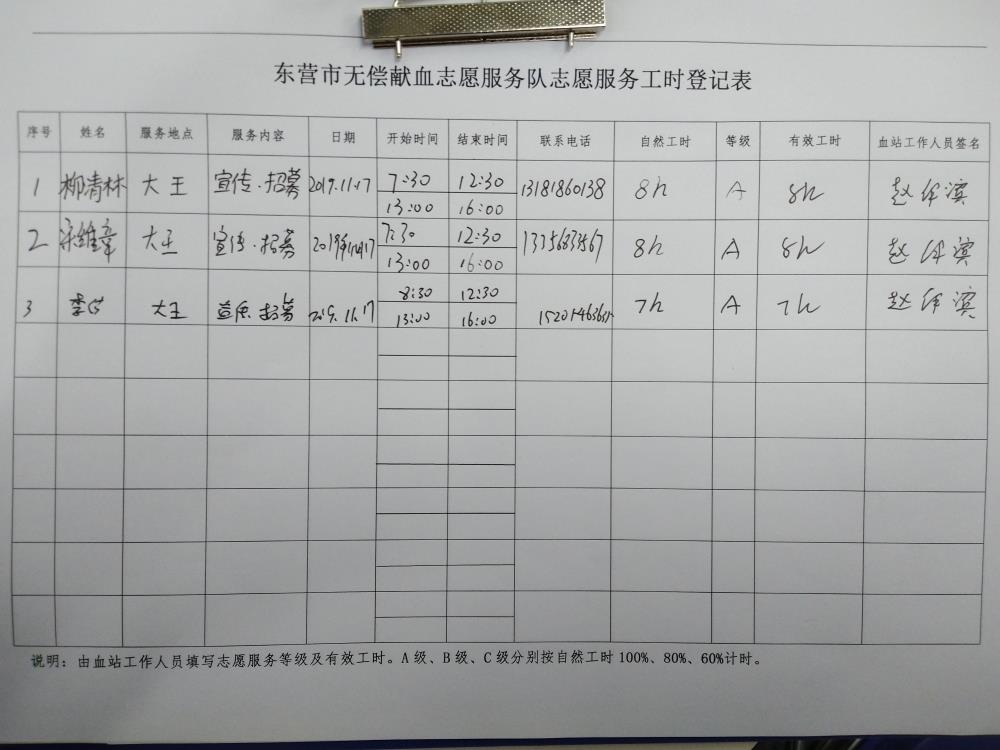 东营市无偿献血志愿服务队志愿服务工时登记表
序号 姓名 服务地点 服务内容 日期 开始时间 结束时间 联系电话 自然工时 等级 有效工时 血站工作人员签名
1 柳青林 大王 宣传.招募 2019.11.17 7:30 12:30 13181860138 8h A 8h 赵
13:00 16:00
2 宋维章 大王 宣传.招募 7:30 12:30 8h A 8h 赵
13:00 16:00
3 李 大王 招募 2019.11.17 8:30 12:30 7h A 7h 赵
13:00 16:00
说明：由血站工作人员填写志愿服务等级及有效工时。A级、B级、C级分别按自然工时100%、80%、60%计时。